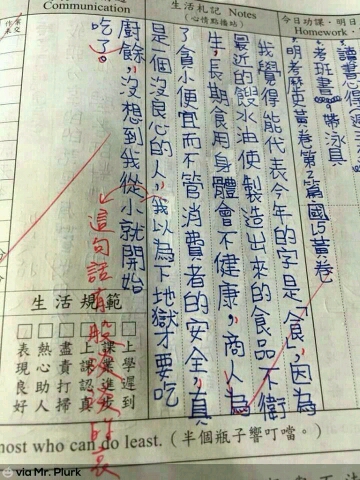 Communication
生活札記 Notes
(心情點播站)
今日功課、明日
Homework
讀書心得
考班書 帶泳具
明考歷史黃卷第2篇 國15黃卷
我覺得能代表今年的字是「食」,因為
最近的餿水油使製造出來的食品不衛
生,長期食用身體會不健康,商人為
了貪小便宜而不管消費者的安全,真
是一個沒良心的人,我以為下地獄才要吃
廚餘,沒想到我從小就開始
吃了。
這句話有股
生活規範
上學遲到
課業進步
上課認真
盡責打掃
熱心助人
表現良好
most who can do least.(半個瓶子響叮噹。)
via Mr. Plurk